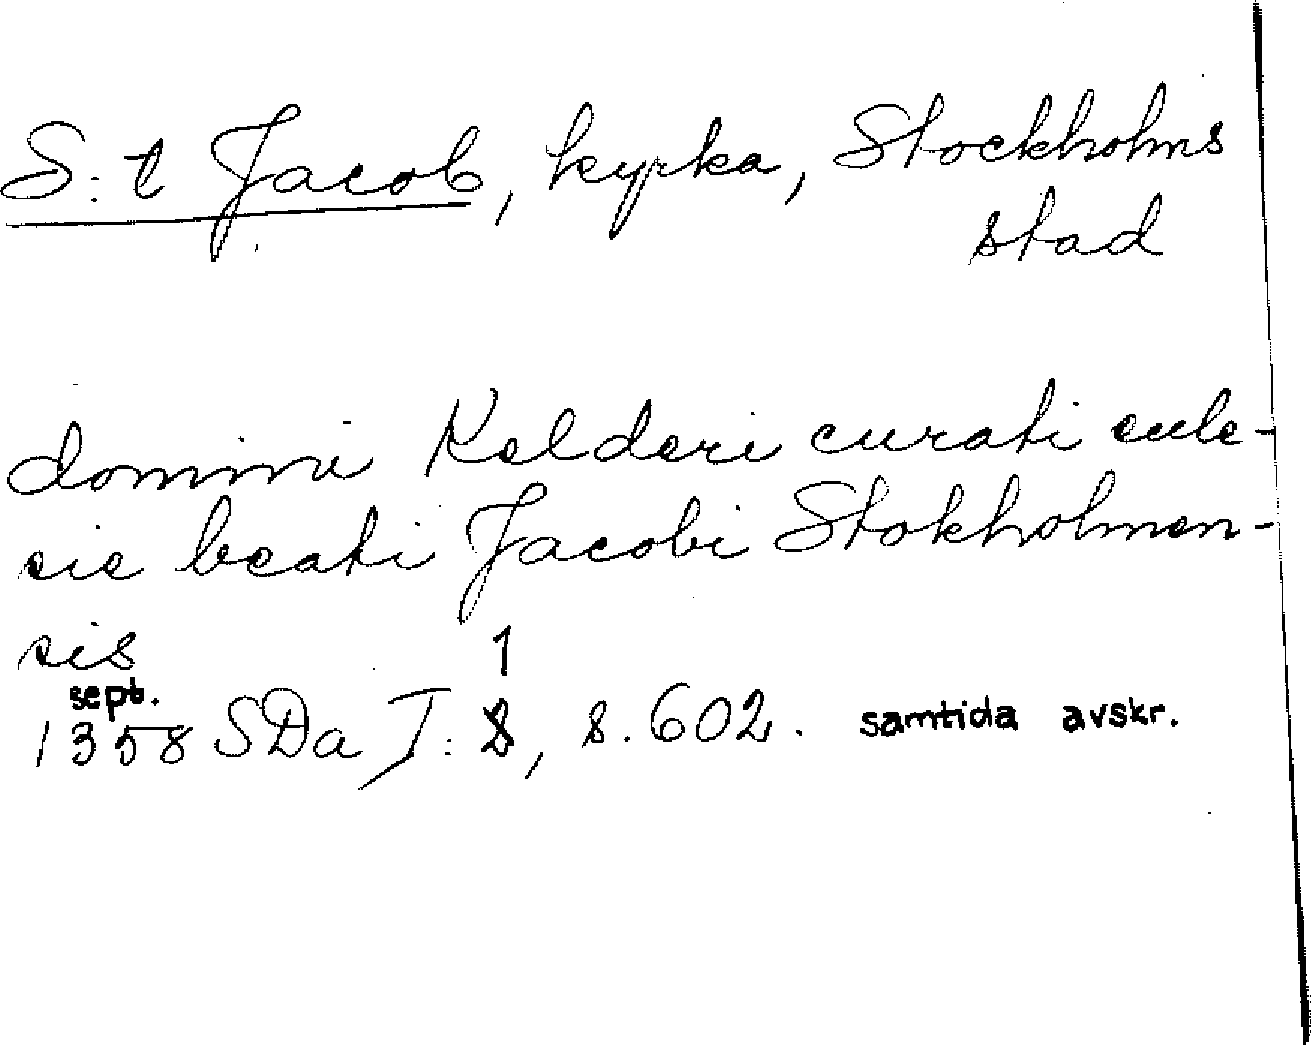 S:t Jacob, kyrka, Stockholms
stad
domini Kelderi curati eccle-
sie beati Jacobi Stokholmen-
sis
1
sept.
1358 SDa I: 8, s. 602. samtida avskr.